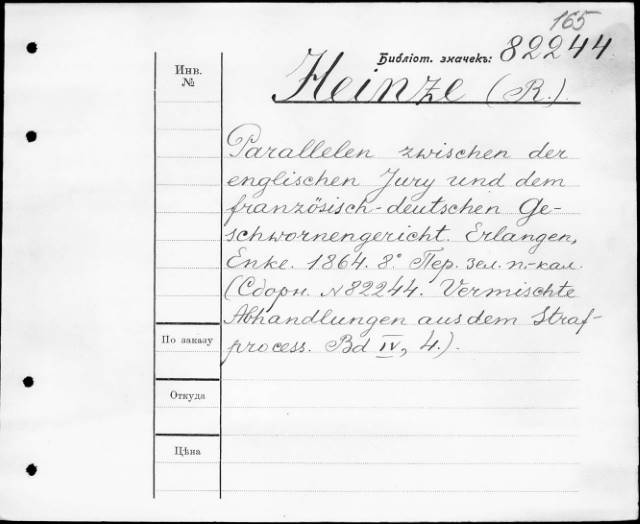 165
Библіот. значекъ: 82244
Инв.
№
Heinze (R.).
Parallelen zwischen der
englischen Jury und dem
französisch-deutschen Ge-
schwornengericht. Erlangen,
Enke. 1864. 8° Пер. зел. п.-кал.
(Сборн. №82244. Vermischte
Abhandlungen aus dem Straf-
process. Bd IV, 4.).
По заказу
Откуда
Цѣна